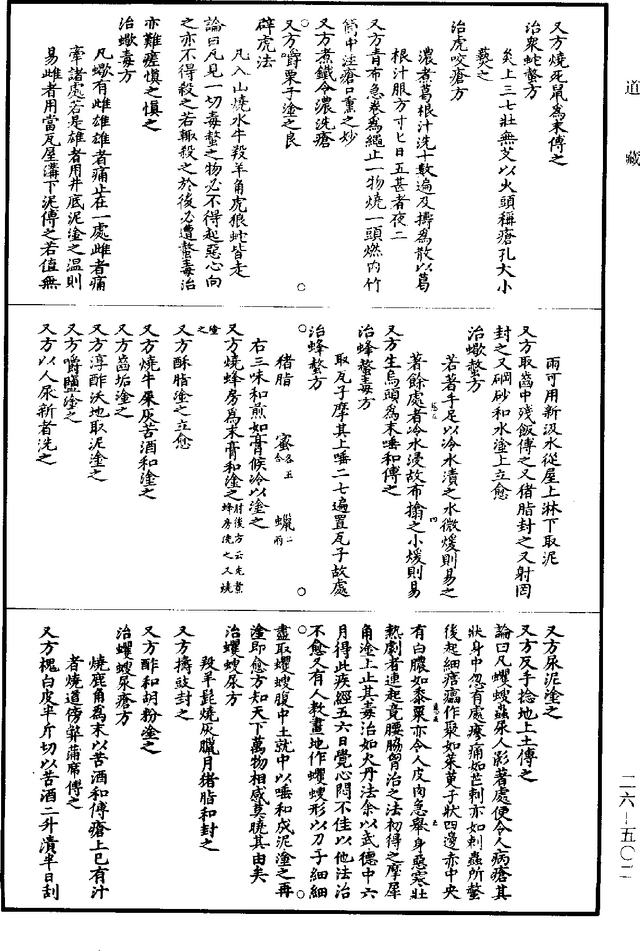 道藏
又方燒死鼠為末傅之
治衆蛇螫方
炙上三七壯無艾以火頭稱瘡孔大小
爇之
治虎咬瘡方
濃煮葛根汁洗十數遍及擣為散以葛
根汁服方寸匕日五甚者夜二
又方青布急卷為繩止一物燒一頭燃内竹
筒中注瘡口熏之妙
又方煮鐵令濃洗瘡
又方嚼栗子塗之良
辟虎法
凡入山燒水牛羖羊角虎狼蛇皆走
論曰凡見一切毒螫之物必不得起惡心向
之亦不得殺之若輒殺之於後必遭螫毒治
亦難瘥慎之慎之
治蠍毒方
凡蠍有雌雄雄者痛止在一處雌者痛
牽諸處若是雄者用井底泥塗之溫則
易雌者用當瓦屋溝下泥傅之若值無
雨可用新汲水從屋上淋下取泥
又方取齒中殘飯傅之又猪脂封之又射罔
封之又硇砂和水塗上立愈
治蠍螫方
若著手足以冷水漬之水微煖則易之
著餘處者冷水浸故布搨之小煖則易
又方生烏頭為末唾和傅之
治蜂螫毒方
取瓦子摩其上唾二七遍置瓦子故處
治蜂螫方
猪脂 蜜各五合 蠟二兩
右三味和煎如膏候冷以塗之
又方燒蜂房為末膏和塗之肘後方云先煮蜂房洗之又燒塗之
又方酥脂塗之立愈
又方燒牛屎灰苦酒和塗之
又方齒垢塗之
又方淳酢沃地取泥塗之
又方嚼鹽塗之
又方以人尿新者洗之
又方尿泥塗之
又方反手捻地上土傅之
論曰凡蠼螋蟲尿人影著處便令人病瘡其
狀身中忽有處㾓痛如芒刺亦如刺蟲所螫
後起細瘖㿔作聚如茱萸子狀四邊赤中央
有白膿如黍粟亦令人皮肉急舉身惡寒壯
熱劇者連起竟腰脇胷治之法初得之摩犀
角塗上止其毒治如火丹法余以武德中六
月得此疾經五六日覺心悶不佳以他法治
不愈又有人教畫地作蠼螋形以刀子細細
盡取蠼螋腹中土就中以唾和成泥塗之再
塗即愈方知天下萬物相感莫曉其由矣
治蠼螋尿方
羖羊髭燒灰臘月猪脂和封之
又方擣豉封之
又方酢和胡粉塗之
治蠼螋尿瘡方
燒鹿角為末以苦酒和傅瘡上已有汁
者燒道傍弊蒲席傅之
又方槐白皮半斤切以苦酒二升漬半日刮
二六—五〇二